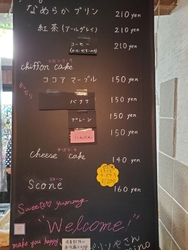 なめらかプリン 210 yen
紅茶(アールグレイ) 210 yen
コーヒー 210 yen
chiffon cake
ココアマーブル 150 yen
バナナ 150 yen
プレーン 150 yen
150 yen
cheese cake 140 yen
Scone 160 yen
Sweet yummy
"Welcome!"
make you happy